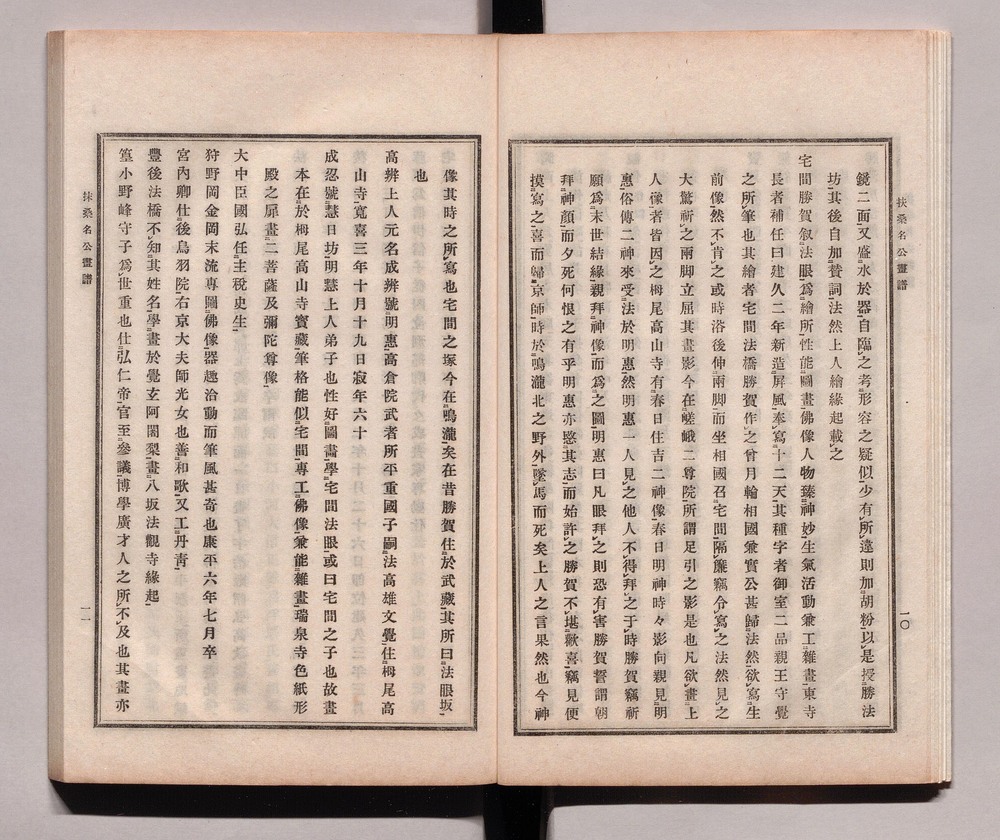 扶桑名公畫譜
一〇
鏡二面又盛水於器自臨之考形容之疑似少有所違則加胡粉以是授勝法
坊其後自加賛詞法然上人繪緣起載之
宅間勝賀叙法眼爲繪所性能圖畫佛像人物臻神妙生氣活動兼工雜畫東寺
長者補任曰建久二年新造屏風奉寫十二天其種字者御室二品親王守覺
之所筆也其繪者宅間法橋勝賀作之曾月輪相國兼實公甚歸法然欲寫生
前像然不肯之或時浴後伸兩脚而坐相國召宅間隔簾竊令寫之法然見之
大驚祈之兩脚立屈其畫影今在嵯峨二尊院所謂足引之影是也凡欲畫上
人像者皆因之栂尾高山寺有春日住吉二神像春日明神時々影向親見明
惠俗傳二神來受法於明惠然明惠一人見之他人不得拜之于時勝賀竊祈
願爲末世結緣親拜神像而爲之圖明惠曰凡眼拜之則恐有害勝賀誓謂朝
拜神顔而夕死何恨之有乎明惠亦愍其志而始許之勝賀不堪歡喜竊見便
摸寫之喜而歸京師時於鳴瀧北之野外墜馬而死矣上人之言果然也今神
像其時之所寫也宅間之塚今在鳴瀧矣在昔勝賀住於武藏其所曰法眼坂
也
高辨上人元名成辨號明惠高倉院武者所平重國子嗣法高雄文覺住栂尾高
山寺寬喜三年十月十九日寂年六十
成忍號慧日坊明慧上人弟子也性好圖畫學宅間法眼或曰宅間之子也故畫
本在於栂尾高山寺寶藏筆格能似宅間專工佛像兼能雜畫瑞泉寺色紙形
殿之扉畫二菩薩及彌陀尊像
大中臣國弘任主税史生
狩野岡金岡末流專圖佛像器趣洽動而筆風甚奇也康平六年七月卒
宮內卿仕後鳥羽院右京大夫師光女也善和歌又工丹靑
豐後法橋不知其姓名學畫於覺玄阿闍梨畫八坂法觀寺緣起
篁小野峰守子爲世重也仕弘仁帝官至參議博學廣才人之所不及也其畫亦
扶桑名公畫譜
一一